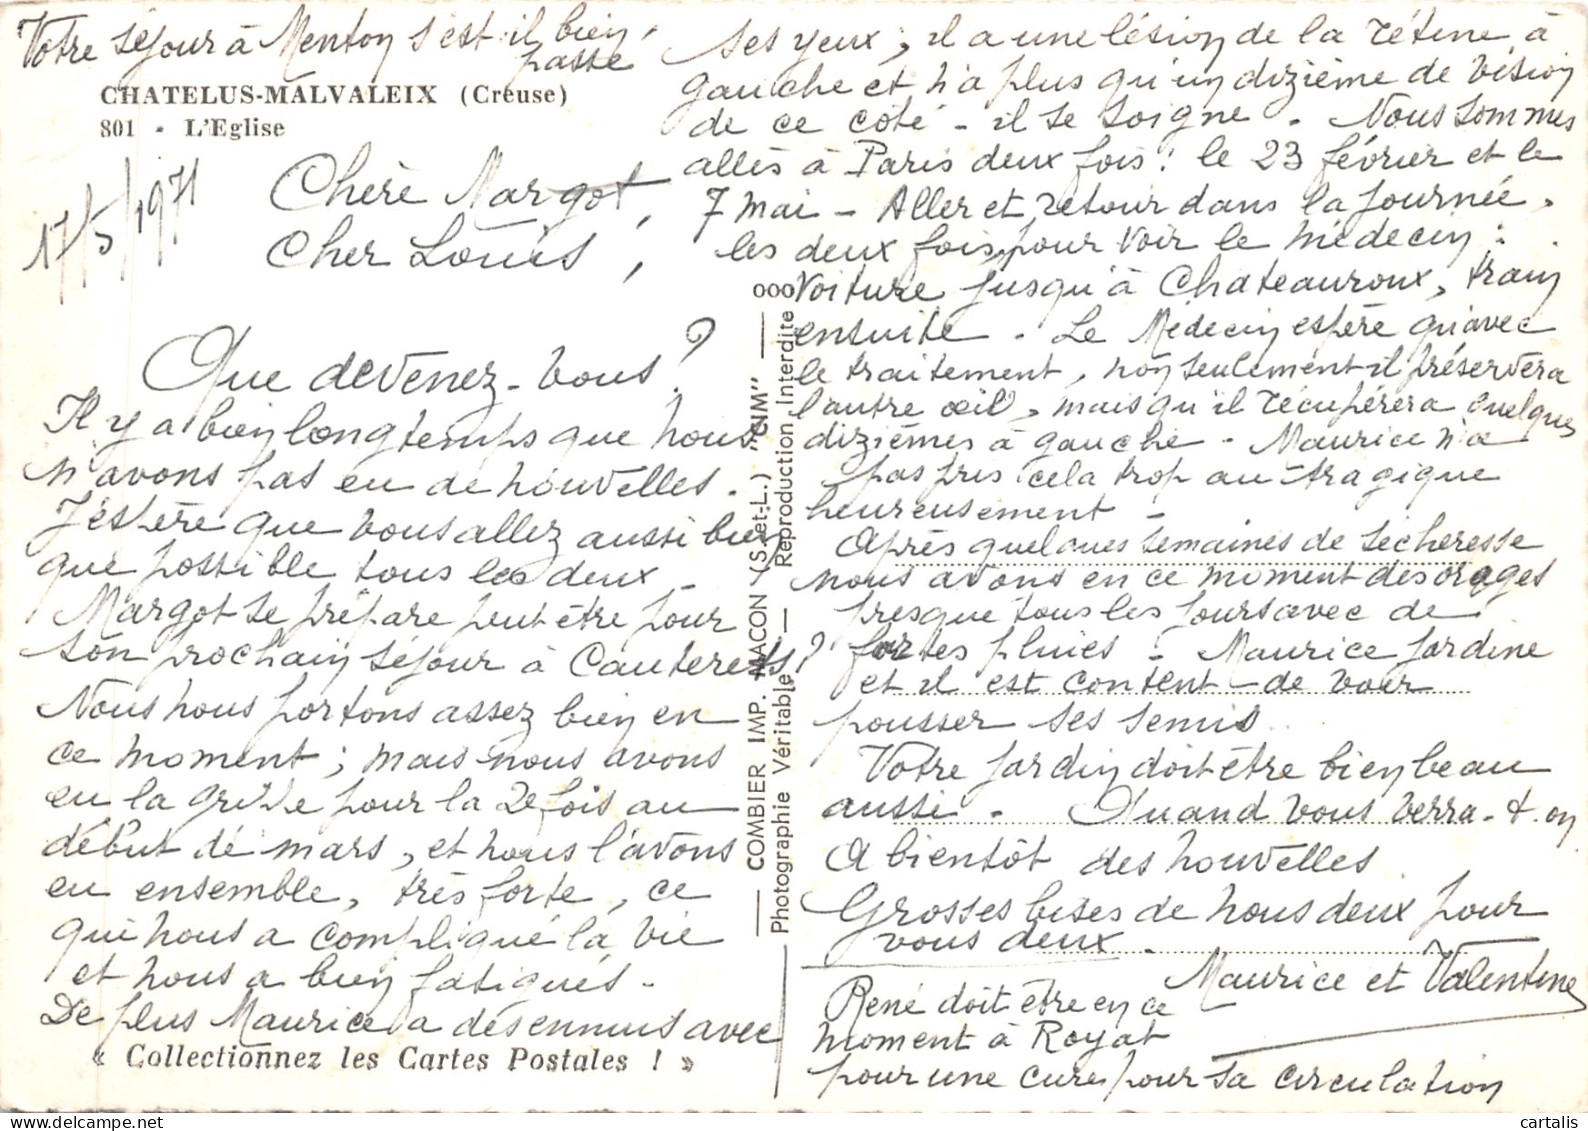 Votre séjour à Menton s'est-il bien
passé
CHATELUS-MALVALEIX (Creuse)
801 - L'Eglise
17/5/1971
Chère Margot,
Cher Louis,
Que devenez-vous ?
Il y a bien longtemps que nous
n'avons pas eu de nouvelles.
J'espère que vous allez aussi bien
que possible tous les deux -
Margot se prépare peut être pour
son prochain séjour à Cauterets ?
Nous nous portons assez bien en
ce moment ; mais nous avons
eu la grippe pour la 2e fois au
début de mars, et nous l'avons
eu ensemble, très forte, ce
qui nous a compliqué la vie
et nous a bien fatigués.
De plus Maurice a des ennuis avec
« Collectionnez les Cartes Postales ! »
COMBIER IMP. MACON (S.-et-L.) "CIM"
Photographie Véritable — Reproduction Interdite
ooo
ses yeux ; il a une lésion de la rétine à
gauche et n'a plus qu'un dizième de vision
de ce coté - il se soigne. Nous sommes
allés à Paris deux fois : le 23 février et le
7 mai - Aller et retour dans la journée,
les deux fois, pour voir le médecin :
voiture jusqu'à Chateauroux, train
ensuite. Le Médecin espère qu'avec
le traitement, non seulement il préservera
l'autre œil, mais qu'il récupérera quelques
dizièmes à gauche - Maurice n'a
pas pris cela trop au tragique
heureusement -
Après quelques semaines de sécheresse
nous avons en ce moment des orages
presque tous les jours avec de
fortes pluies - Maurice jardine
et il est content de voir
pousser ses semis
Votre jardin doit être bien beau
aussi. Quand vous verra-t-on
A bientôt des nouvelles
Grosses bises de nous deux pour
vous deux.
Maurice et Valentine
René doit être en ce
moment à Royat
pour une cure pour sa circulation
cartalis